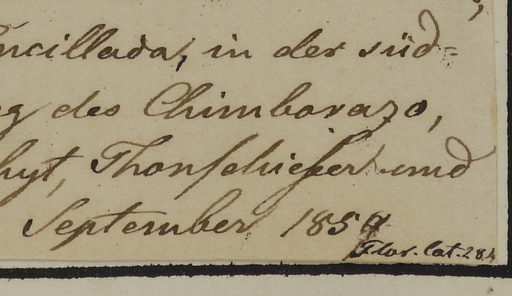 ncillada, in der süd=
g des Chimborazo,
hyt, Thonschiefer und
September 1859
Flor. lat. 284